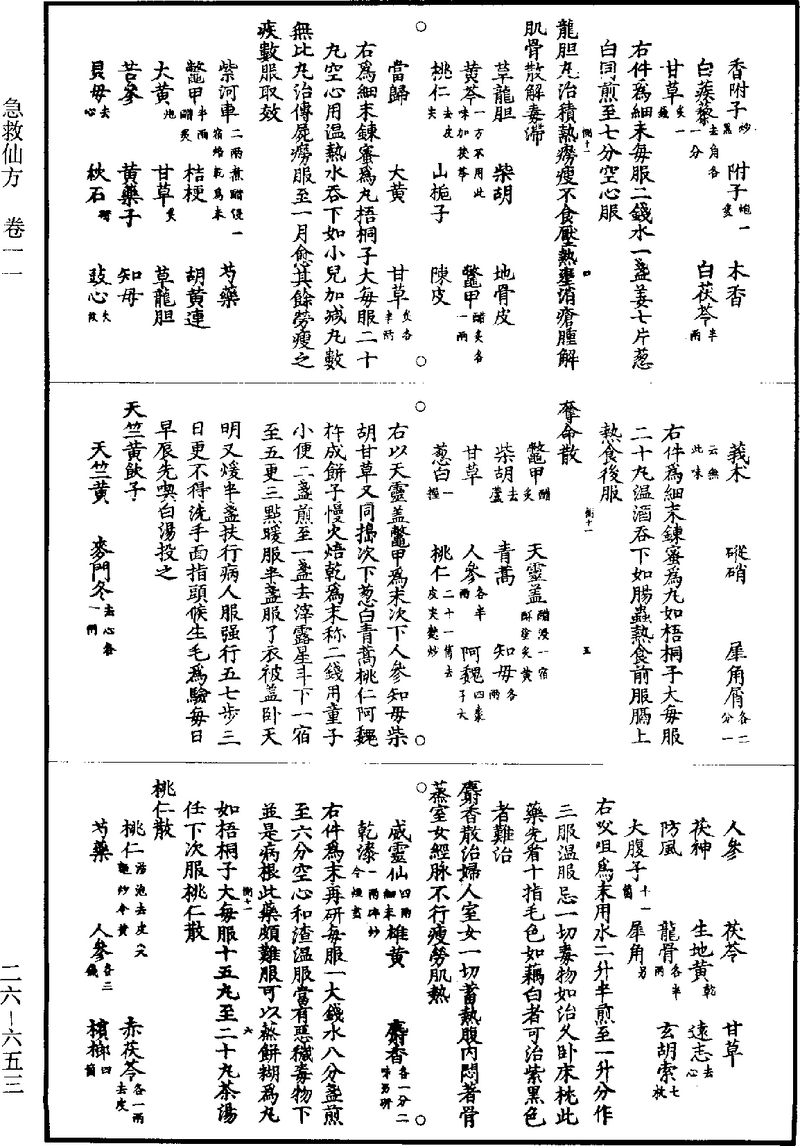 急救仙方 卷一一
二六—六五三
香附子炒黑 附子炮一隻 木香
白蒺藜去角各一分 白茯苓半兩
甘草炙一錢
右件爲細末每服二錢水一盞姜七片葱
白同煎至七分空心服
龍胆丸治積熱癆瘦不食壓熱壅消瘡腫解
肌骨散解毒滯
草龍胆 柴胡 地骨皮
黄芩一方不用此味加茯苓 鼈甲醋炙各一兩
桃仁去皮尖 山梔子 陳皮
當歸 大黄 甘草炙各半兩
右爲細末鍊蜜爲丸梧桐子大每服二十
丸空心用温熱水吞下如小兒加减丸數
無比丸治傳屍癆服至一月愈其餘勞瘦之
疾數服取效
紫河車二兩煮醋浸一宿焙乾爲末 芍藥
鼈甲半兩醋炙 桔梗 胡黄連
大黄炮 甘草炙 草龍胆
苦參 黄藥子 知母
貝母去心 秋石研 豉心
莪术 硇硝 犀角屑各二分一
云無此味
右件爲細末鍊蜜爲丸如梧桐子大每服
二十丸温酒吞下如腸蟲熱食前服膈上
熱食後服
奪命散
鼈甲醋炙 天靈蓋醋浸一宿酥塗炙黄
柴胡去蘆 青蒿 知母各兩
甘草 人參各半兩 阿魏四棗子大
葱白一握 桃仁二十一箇去皮尖麩炒
右以天靈蓋鼈甲爲末次下人參知母柴
胡甘草又同搗次下葱白青蒿桃仁阿魏
杵成餅子慢火焙乾爲末称二錢用童子
小便二盞煎至一盞去滓露星斗下一宿
至五更三點暖服半盞服了衣被蓋卧天
明又煖半盞扶行病人服强行五七步三
日更不得洗手面指頭候生毛爲驗每日
早辰先喫白湯投之
天竺黄飲子
天竺黄 麥門冬去心各一兩
人參 茯苓 甘草
茯神 生地黄乾 遠志去心
防風 龍骨各半兩 玄胡索七枚
大腹子十一箇 犀角另
右㕮咀爲末用水二升半煎至一升分作
三服温服忌一切毒物如治久卧床枕此
藥先看十指毛色如藕白者可治紫黑色
者難治
麝香散治婦人室女一切蓄熱腹内悶著骨
蒸室女經脉不行瘦勞肌熱
威靈仙四兩細末 雄黄 麝香各一分二味另研
乾漆一兩碎炒令煙盡
右件爲末再研每服一大錢水八分盞煎
至六分空心和渣温服當有惡穢毒物下
並是病根此藥頗難服可以蒸餅糊爲丸
如梧桐子大每服十五丸至二十丸茶湯
任下次服桃仁散
桃仁散
桃仁湯泡去皮尖麩炒令黄 赤茯苓各一兩去皮
芍藥 人參各二錢 檳榔四箇